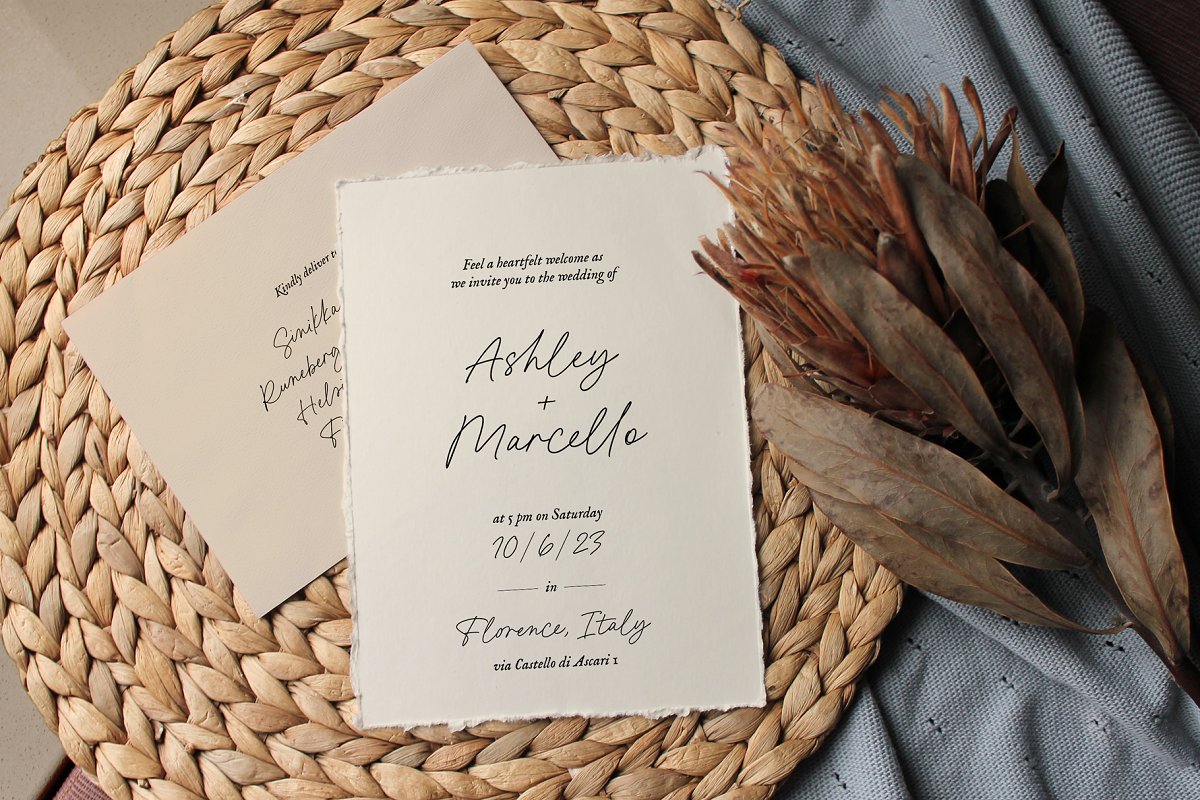 Kindly deliver to
Sinikka
Runeberg
Feel a heartfelt welcome as
we invite you to the wedding of
Ashley
+
Marcello
at 5 pm on Saturday
10/6/23
in
Florence, Italy
via Castello di Ascari 1